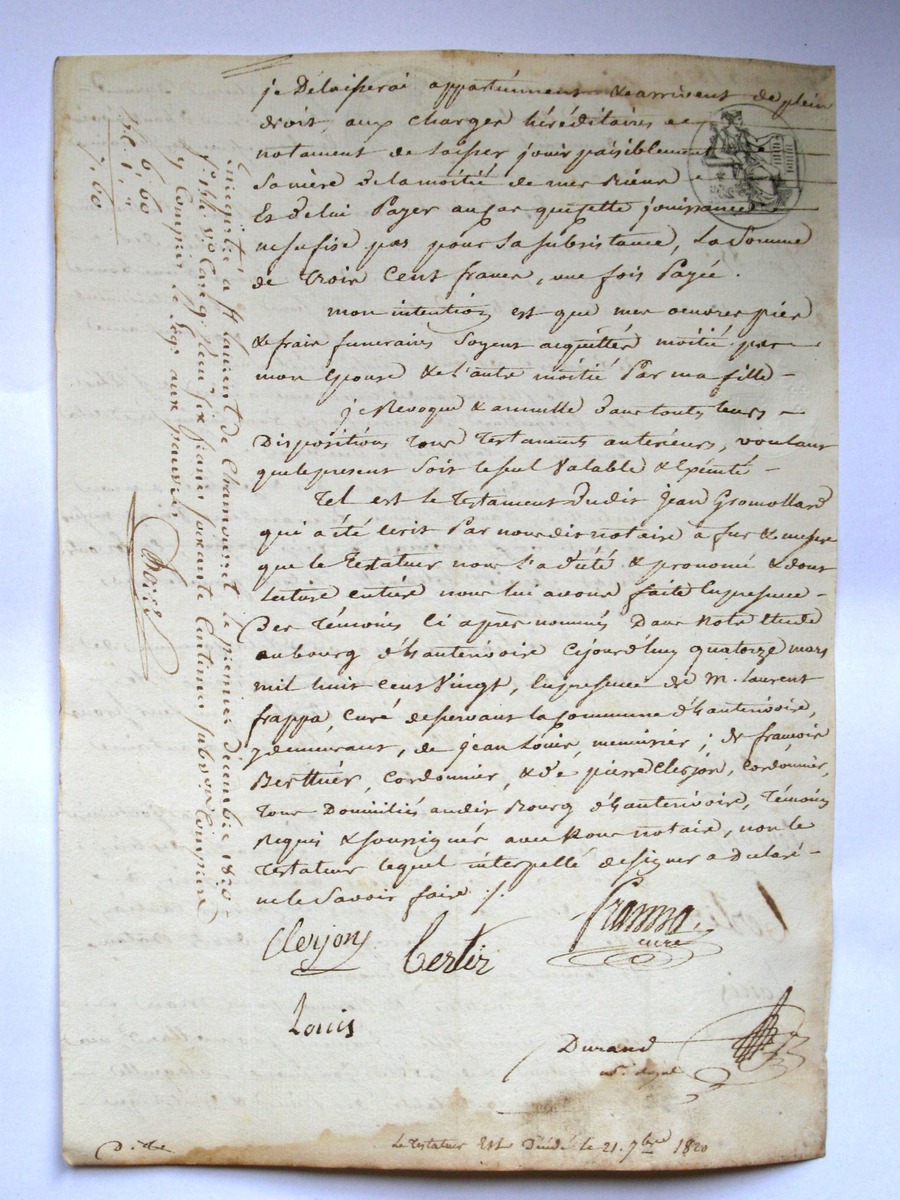 je Délaisserai appartiennent & arrivent de plein
droit, aux charges héréditaires &
notament de laisser jouir paisiblement
sa mère de la moitié de mes Biens
Et de lui Payer au cas que cette jouissance
ne sufise pas pour sa subsistance, La Somme
de Trois Cent francs, une fois Payée.
mon intention est que mes oeuvres pies
& frais funeraires soyent acquittés moitié par
mon Epouse & l'autre moitié Par ma fille
je Revoque & annulle Dans touts leurs
Dispositions Tous Testaments anterieurs, voulant
que le present soit le seul Valable & Exécuté
Tel est le Testament dudit jean Gromollard
qui a été écrit Par nous dit notaire à fur & mesure
que le Testateur nous l'a dicté & prononcé & dont
Lecture entière nous lui avons faite En presence
Des Témoins Ci après nommés Dans Notre Etude
au bourg d'hauterivoire Cejourd'huy quatorze mars
mil huit cent Vingt, En presence de M. Laurent
frappa, Curé deservant la commune d'hauterivoire,
y demeurant, de jean Louis, menuisier; de françois
Berthier, Cordonnier, & de pierre Clerjon, Cordonnier,
Tous Domiciliés audit Bourg d'hauterivoire, Témoins
Requis & soussignés avec Nous notaire, non le
Testateur lequel interpellé de signer a Déclaré
ne le Savoir faire ./.
Clerjon Bertir Frappa, curé
Louis
Durand
no. Royal
Le Testateur Est Décédé le 21. 7bre 1820
Enregistré à St laurent de Chamousset le premier decembre 1820
f° 144 v° Cas 9. Reçu six francs soixante Centimes subvon Comprise
y Compris le legs aux pauvres
6, 60
1, "
7, 60